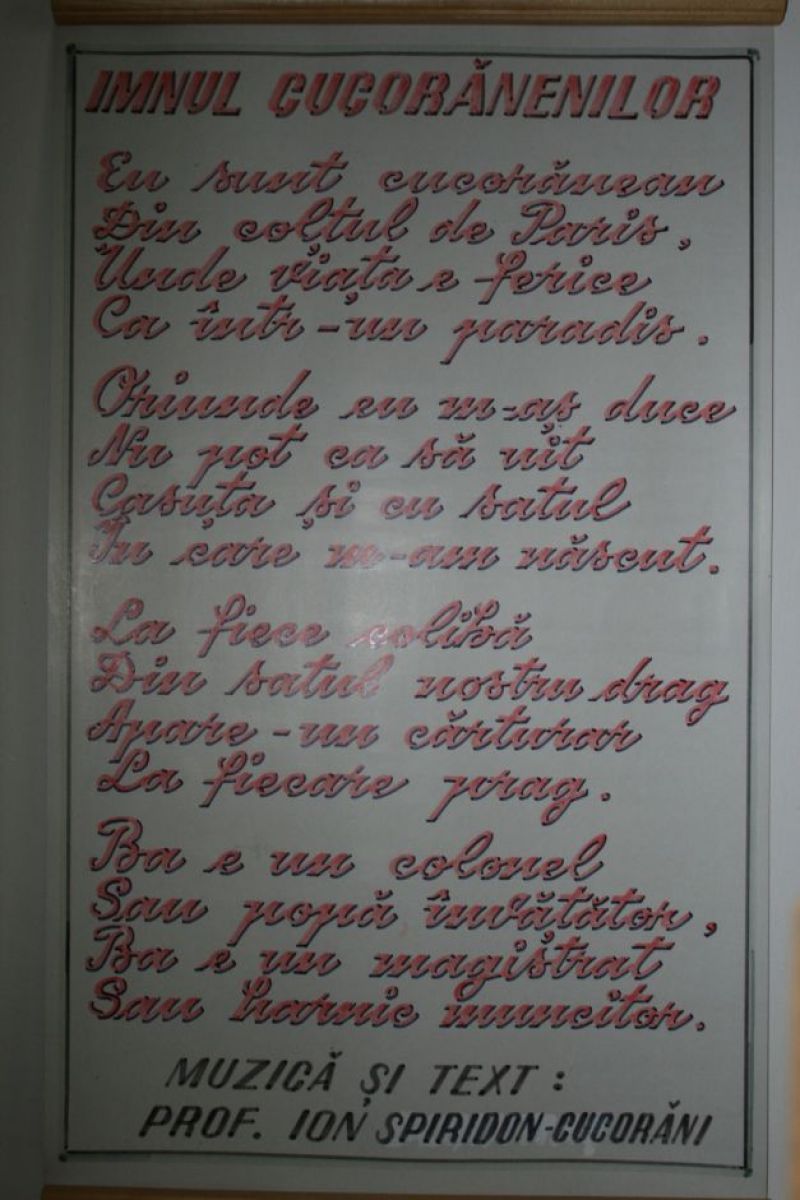 IMNUL CUCORĂNENILOR
Eu sunt cucorănean
Din colțul de Paris,
Unde viața e ferice
Ca într-un paradis.
Oriunde eu m-aș duce
Nu pot ca să uit
Casuța și cu satul
În care m-am născut.
La fiece colibă
Din satul nostru drag
Apare-un cărturar
La fiecare prag.
Ba e un colonel
Sau popă învățător,
Ba e un magistrat
Sau harnic muncitor.
MUZICĂ ȘI TEXT:
PROF. ION SPIRIDON-CUCORĂNI